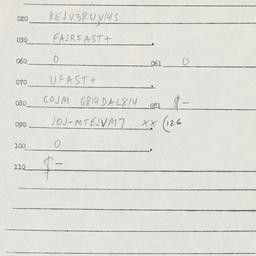 020 KEJV3RUY14S
030 FAJRFAST+
060 0 061 0
070 UFAST+
080 COJM G814DAL814 082 $-
090 JOJ-MTEJVM7 XX (126
100 0
110 $-